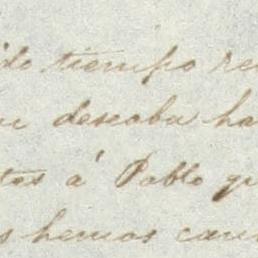 ido tiempo re
deseaba ha
tes á Pablo q
s hemos cam